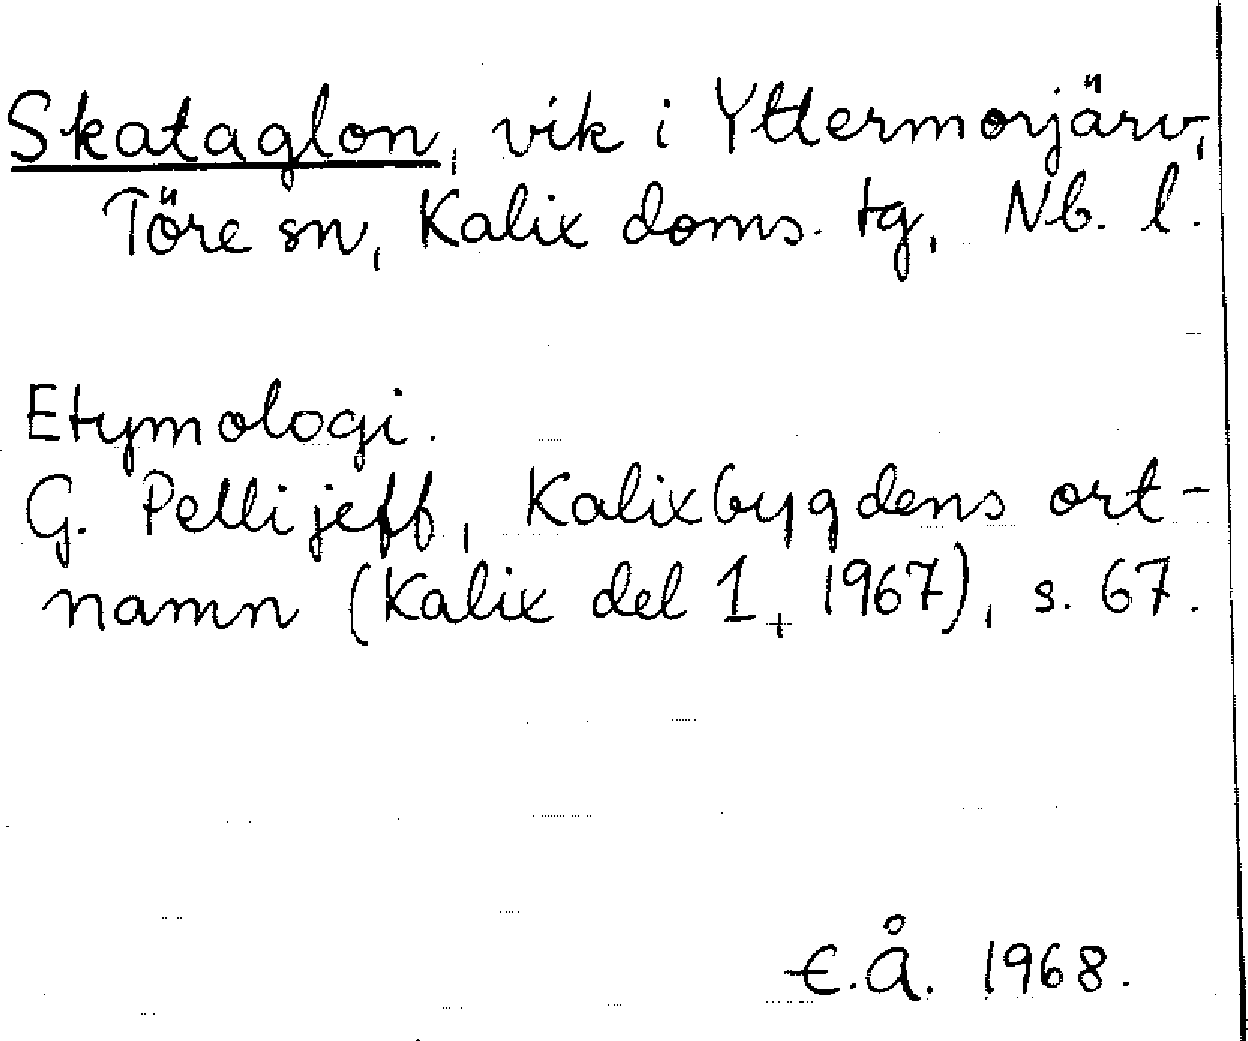 Skataglon, vik i Yttermorjärv,
Töre sn, Kalix doms. tg, Nb. l.
Etymologi.
G. Pellijeff, Kalixbygdens ort-
namn (Kalix del 1, 1967), s. 67.
E.Å. 1968.